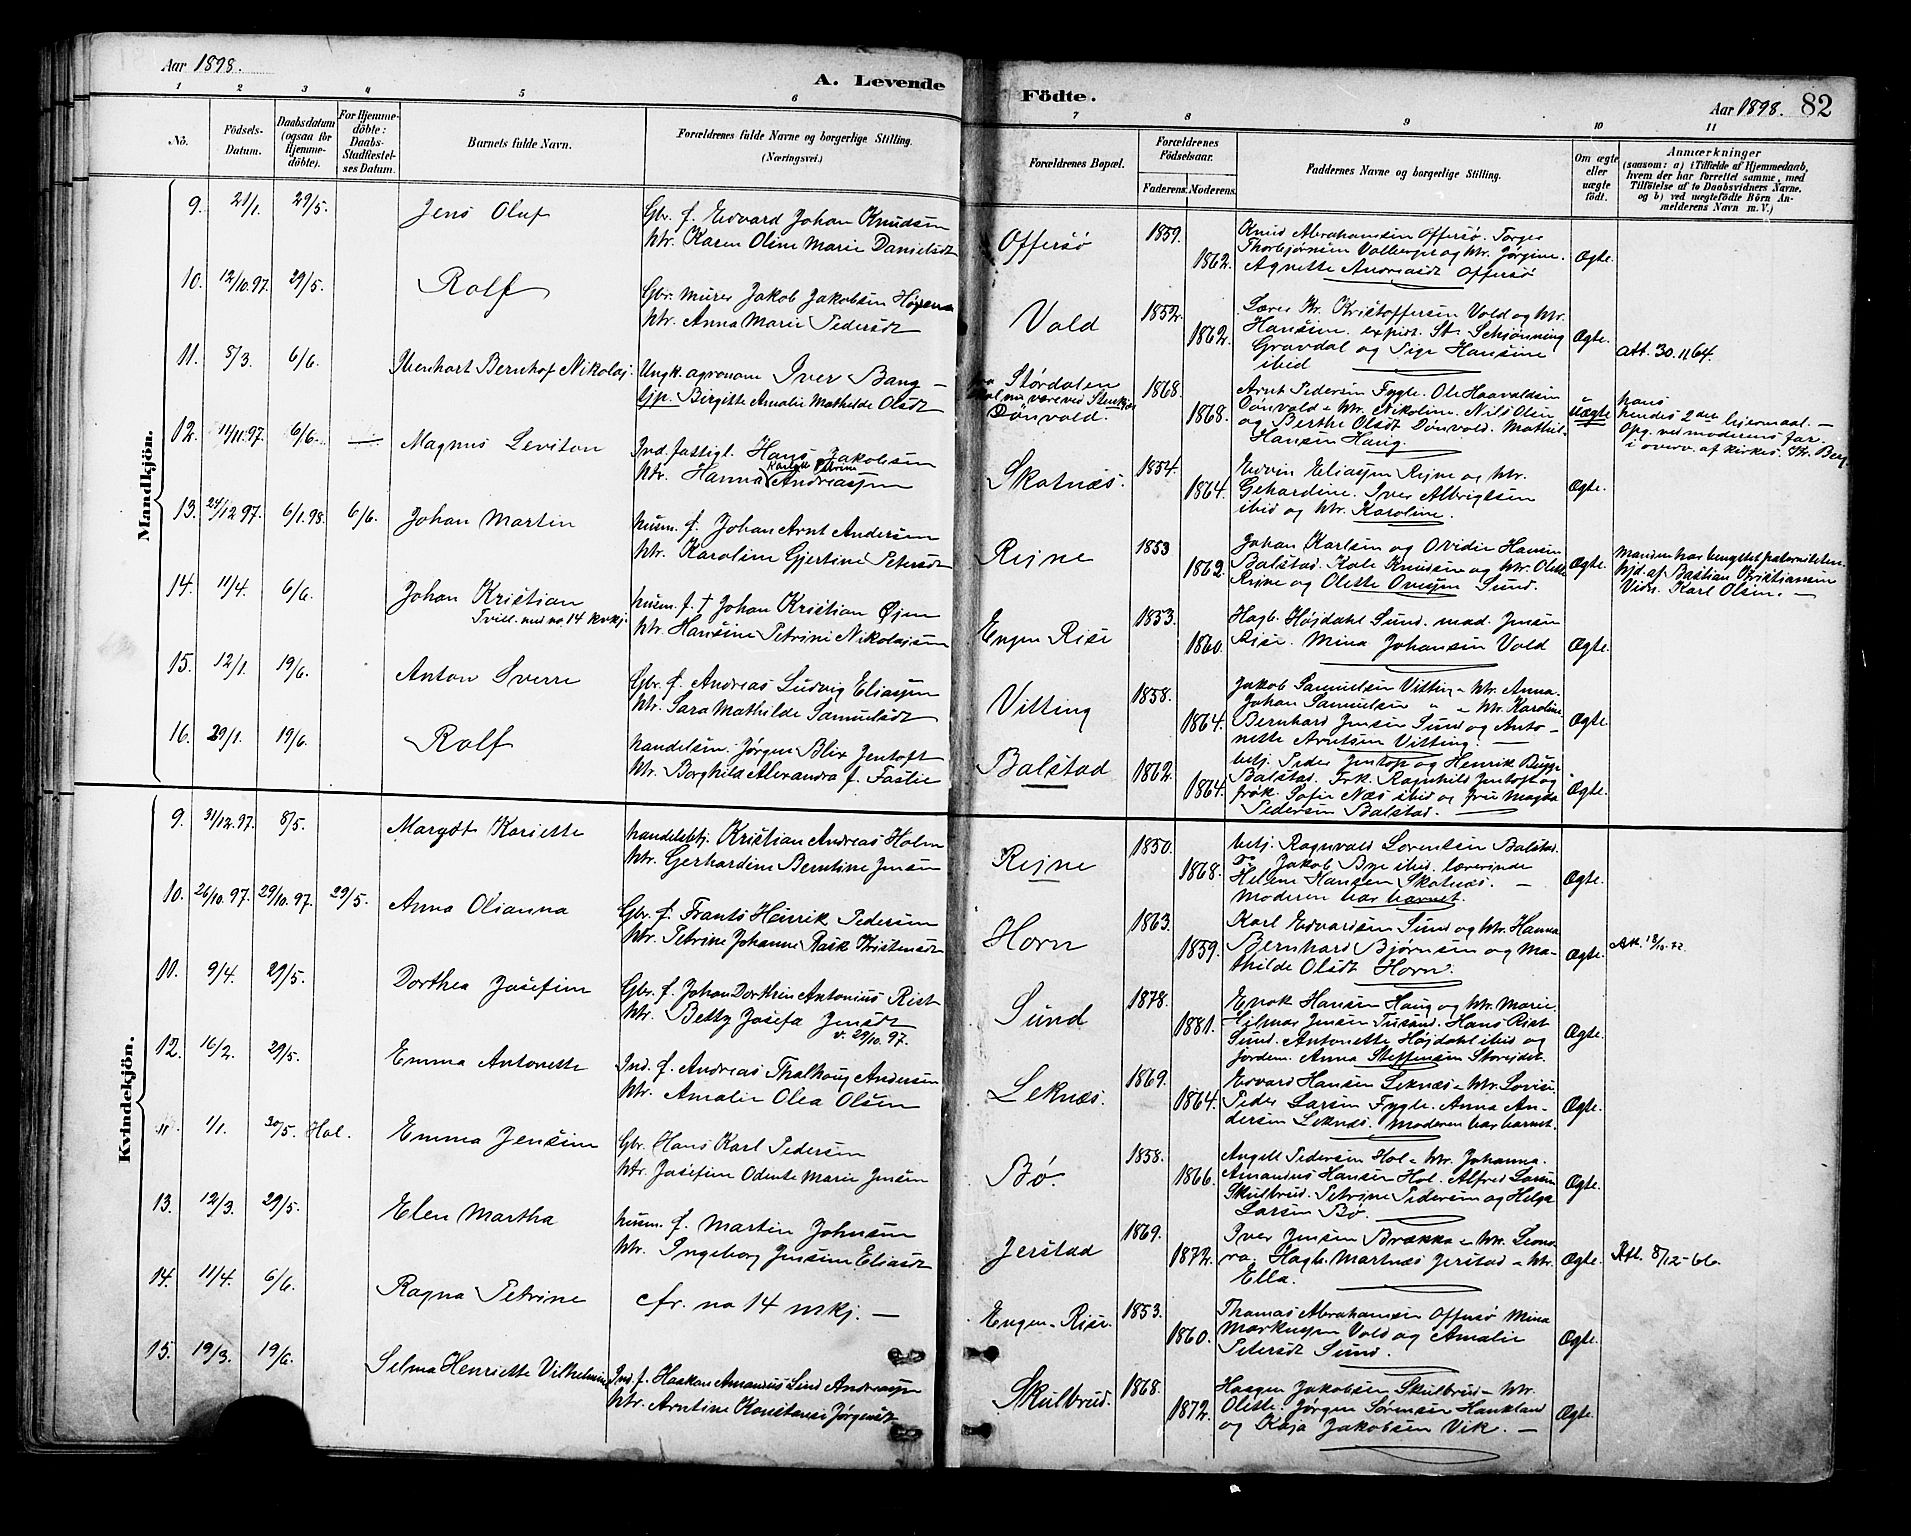 Aar 1898.
A. Levende
Födte.
Aar 1898. 82
1 2 3 4 5 6 7 8 9 10 11
No.
Födsels-Datum.
Daabsdatum (ogsaa for Hjemmedöbte).
For Hjemmedöbte: Daabs-Stadfæstelses Datum.
Barnets fulde Navn.
Forældrenes fulde Navne og borgerlige Stilling.
(Næringsvei.)
Forældrenes Bopæl.
Forældrenes Födselsaar.
Faderens. Moderens.
Faddernes Navne og borgerlige Stilling.
Om ægte eller uægte födt.
Anmærkninger
(saasom: a) i Tilfælde af Hjemmedaab, hvem der har forrettet samme, med Tilföielse af to Daabsvidners Navne, og b) ved uægtefödte Börn Anmelderens Navn m. V.)
Mandkjön.
9. 21/1. 29/5. Jens Oluf
Gbr. f. Edvard Johan Knudsen
htr. Karen Oline Marie Danielsdt
Offersø 1859. 1862.
Knud Abrahamsen Offersø. Torger
Thorbjørnsen Valberget og htr. Jørgine.
Agnette Andreasdt Offersø
Ægte.
10. 12/10.97. 29/5. Rolf
Gbr. murer Jakob Jakobsen
htr. Anna Marie Pedersdt
Vold 1852. 1862.
Lærer Kr. Kristoffersen Vold og htr.
Hansine. exped. St. Schjønning
Gravdal og Pige Hansine
ibid
Ægte.
att. 30.1164.
11. 5/3. 6/6. Menhart Bernhof Nikolaj.
Ungk. agronom Iver Bang —
tjp. Birgitte Amalie Mathilde Olsdt
Størdalen
Dønvold. 1868. 1868.
Arnt Pedersen Fygle. Ole Haavaldsen
Dønvold - htr. Nikoline. Nils Olsen
og Berthe Olsdt Dønvold. Mathil-
Hansen Haug.
uægte
hans
hendes 2det lejermaal. —
Opg. ved moderens far.
i overv. af kirkes. Kr. Berg
12. 11/11.97. 6/6. — Magnus Leviton
Ind. fattigl. Hans Jakobsen
htr. Hanna Karlotte Petrine Andreasen
Skotnæs. 1854. 1864.
Edvin Eliassen Rejne og htr.
Gehardine. Iver Albrigtsen
ibid og htr. Karoline.
Ægte.
13. 24/12.97. 6/1.98. 6/6. Johan Martin
husm. f. Johan Arnt Andersen
htr. Karoline Gjertine Petersdt
Rejne 1853 1862.
Johan Karlsen og Ovidie Hansen
Balstad. Kole Knudsen og htr. Olette
Rejne og Olette Ovesen Sund.
Ægte.
Manden har benyttet paterniteten.
Hjd. af Bastian Kristiansen
Vidn. Karl Olsen. —
14. 11/4. 6/6. Johan Kristian
Tvill. med no. 14 kvkj.
husm. f. † Johan Kristian Øjen
htr. Hansine Petrine Nikolajsen
Engen Rise 1853. 1860.
Hagb. Højdahl Sund. mad. Jensen
Rise. Mina Johansen Vold
Ægte.
15. 12/1. 19/6. Anton Sverre
Gbr. f. Andreas Ludvig Eliassen
htr. Sara Mathilde Samuelsdt
Vitting 1858. 1864.
Jakob Samuelsen Vitting - htr. Anna.
Johan Samuelsen " - htr. Karoline
Bernhard Jensen Sund og Anto-
nette Arntsen Vitting. —
Ægte.
16. 29/1. 19/6. Rolf
handelsm. Jørgen Blix Jentoft
htr. Borghild Alexandra f. Fastie
Balstad 1862. 1864.
betj. Peder Jentoft og Henrik Bugge
Balstad. Frk. Ragnhild Jentoft og
frøk. Sofie Næs ibid og fru Magda
Pedersen Balstad.
Ægte.
Kvindekjön.
9. 31/12.97. 8/5. Margot Kariette
handelsbtj. Kristian Andreas Holm
htr. Gerhardine Berntine Jensen
Rejne 1850. 1868.
betj. Ragnvald Lorentsen Balstad.
Do Jakob Bye ibid. lærerinde
Helene Hansen Skotnæs. —
Moderen bar barnet.
Ægte.
10. 26/10.97. 29/10.97. 29/5. Anna Olianna
Gbr. f. Frants Henrik Pedersen
htr. Petrine Johanne Rask Kristensdt
Horn 1863. 1859.
Karl Edvardsen Sund og htr. Hanna
Bernhard Bjørnsen og Ma-
thilde Olsdt Horn.
Ægte.
11. 9/4. 29/5. Dorthea Josefine
Gbr. f. Johan Dorthin Antonius Rist
htr. Betzy Josefa Jensdt
v. 29/10.97.
Sund 1878. 1881.
Enok Hansen Haug og htr. Marie
Hilmar Jensen Tusand. Hans Rist
Sund. Antonette Højdahl ibid og
Jordem. Anna Steffensen Storejdet.
Ægte.
12. 16/2. 29/5. Emma Antonette
Ind. f. Andreas Thalhaug Andersen
htr. Amalie Olea Olsen
Leknæs. 1869. 1864.
Edvard Hansen Leknæs - htr. Lovise
Peder Larsen Fygle. Anna An-
dersen Leknæs. Moderen bar barnet.
Ægte.
1/1. 30/5. Hol. Emma Jensine
Gbr. Hans Karl Pedersen
htr. Josefine Odente Marie Jensen
Bø. 1858. 1866.
Angell Pedersen Hol - htr. Johanna.
Amandus Hansen Hol. Alfred Larsen
Skulbrud. Petrine Pedersen og Helga
Larsen Bø.
Ægte.
13. 12/3. 29/5. Elen Martha
husm. f. Martin Johnsen
htr. Ingeborg Jensine Eliasdt
Jerstad 1869. 1872.
Iver Jensen Brækka - htr. Leono-
ra. Hagb. Martnæs Jerstad - htr.
Ella.
Ægte.
Att. 8/12-66.
14. 11/4. 6/6. Ragna Petrine
cfr. no 14 mkj. —
Engen - Rise. 1853. 1860.
Thomas Abrahamsen Offersø Mina
Markussen Vold og Amalie
Petersdt Sund.
Ægte.
15. 19/3. 19/6. Selma Henriette Vilhelmine
Ind. f. Haakon Amandus Lind Andreassen
htr. Arntine Konstanse Jørgensdt
Skulbrud. 1868. 1872.
Haagen Jakobsen Skulbrud - htr.
Olette. Jørgen Sørensen Haukland
og Kaja Jakobsen Vik. —
Ægte.